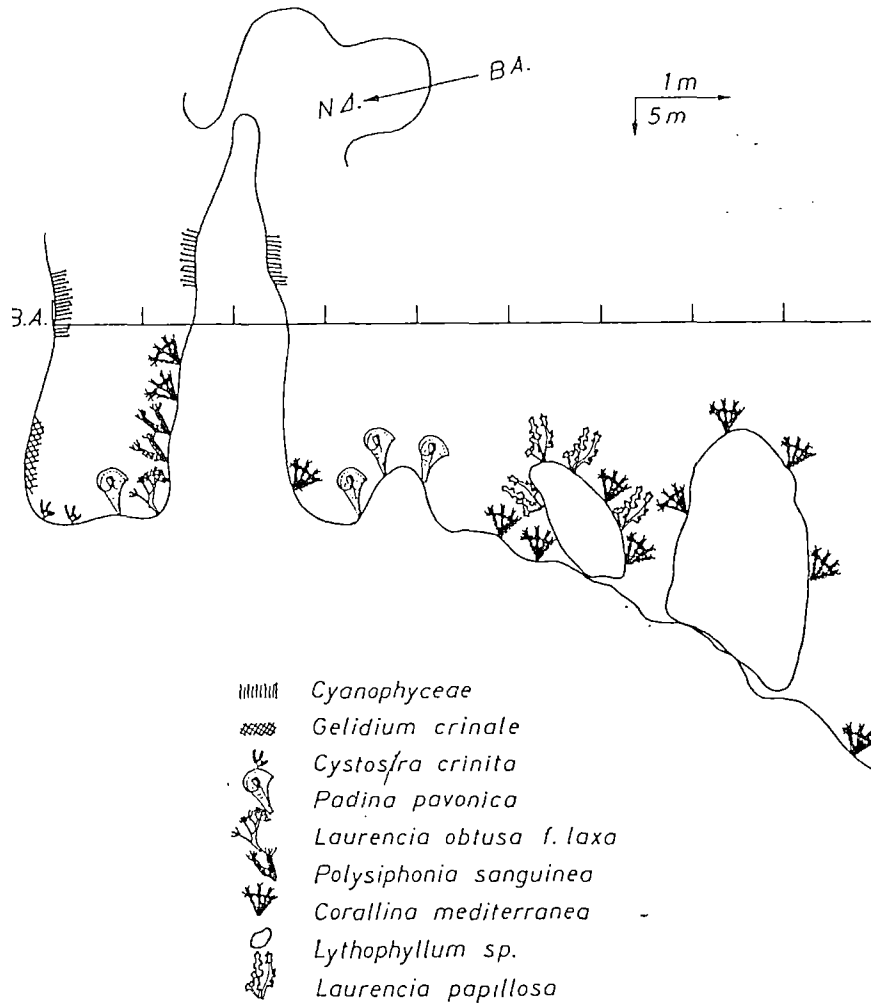 BA.
NΔ.
1m
5m
B.A.
Cyanophyceae
Gelidium crinale
Cystosira crinita
Padina pavonica
Laurencia obtusa f. laxa
Polysiphonia sanguinea
Corallina mediterranea
Lythophyllum sp.
Laurencia papillosa